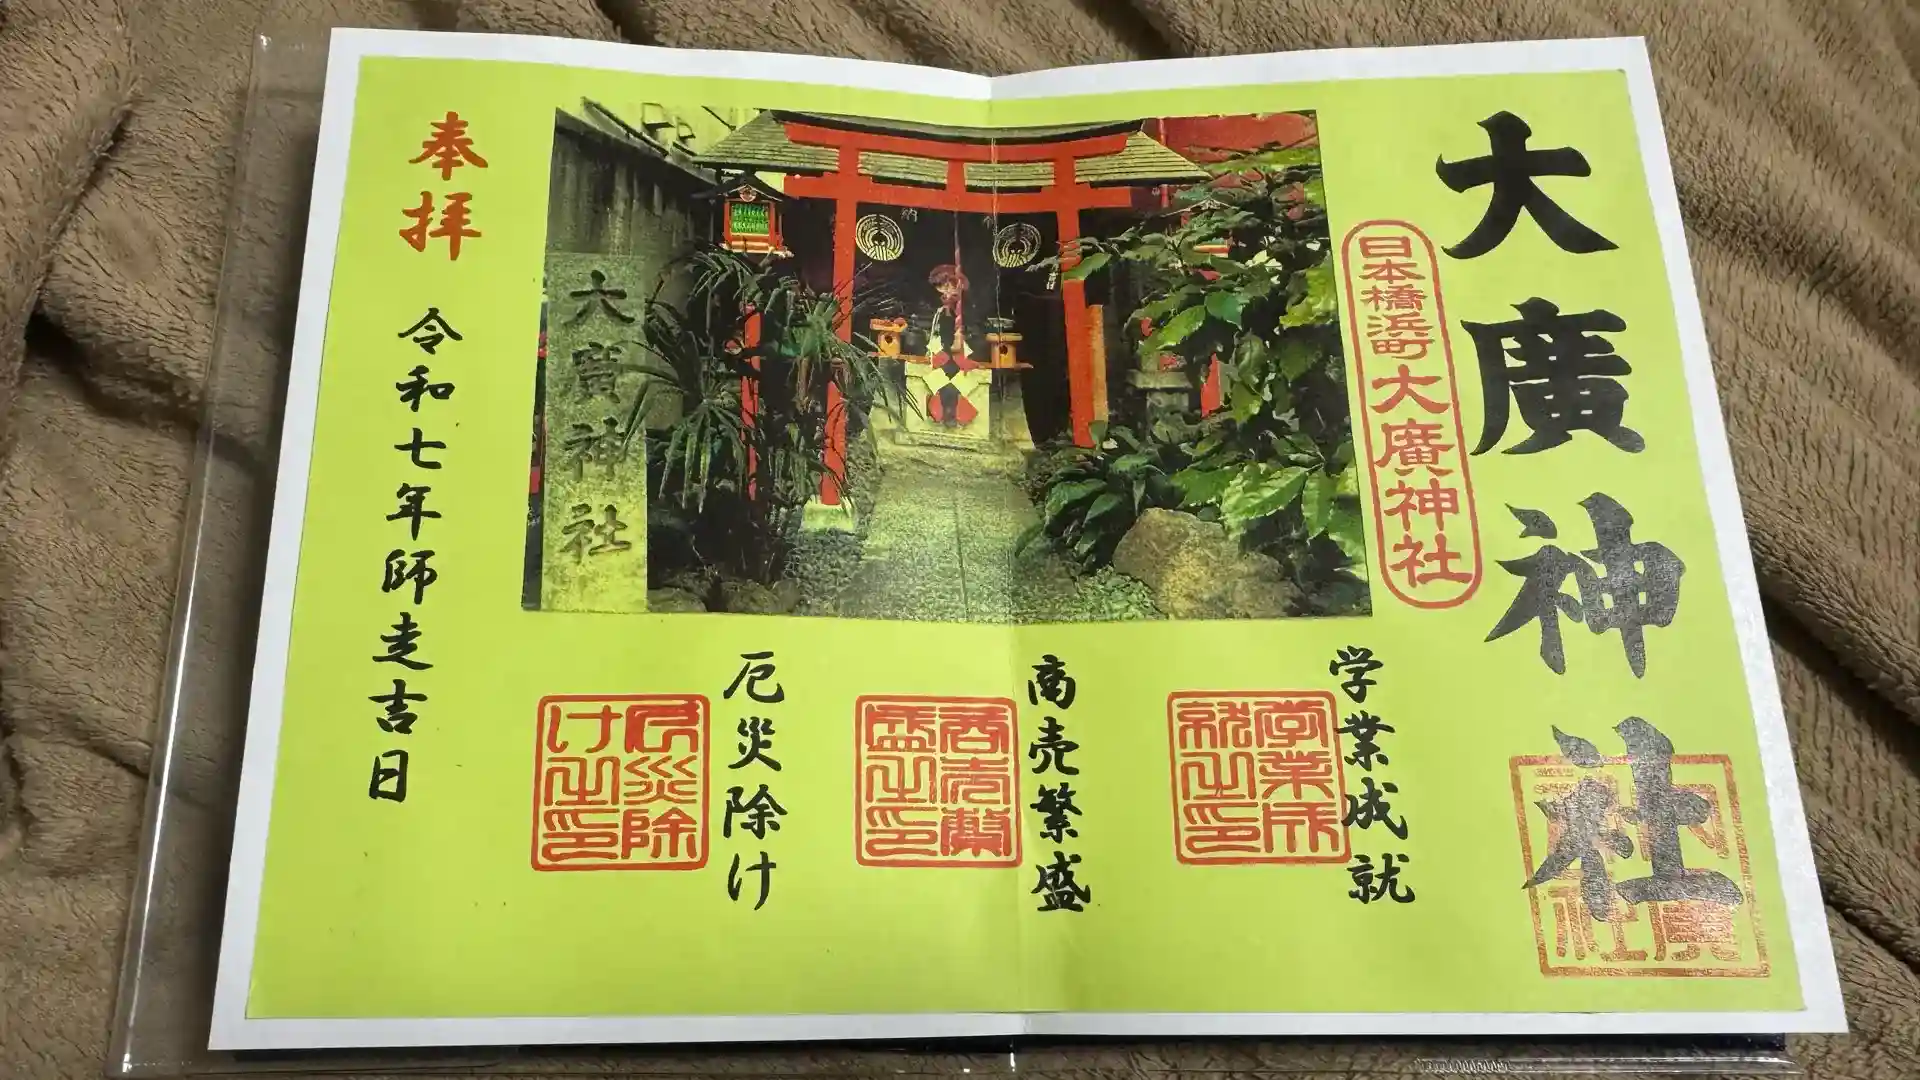 大廣神社
日本橋浜町大廣神社
大廣神社
学業成就
学業成就之印
商売繁盛
商売繁盛之印
厄災除け
厄災除け之印
奉拝
令和七年師走吉日